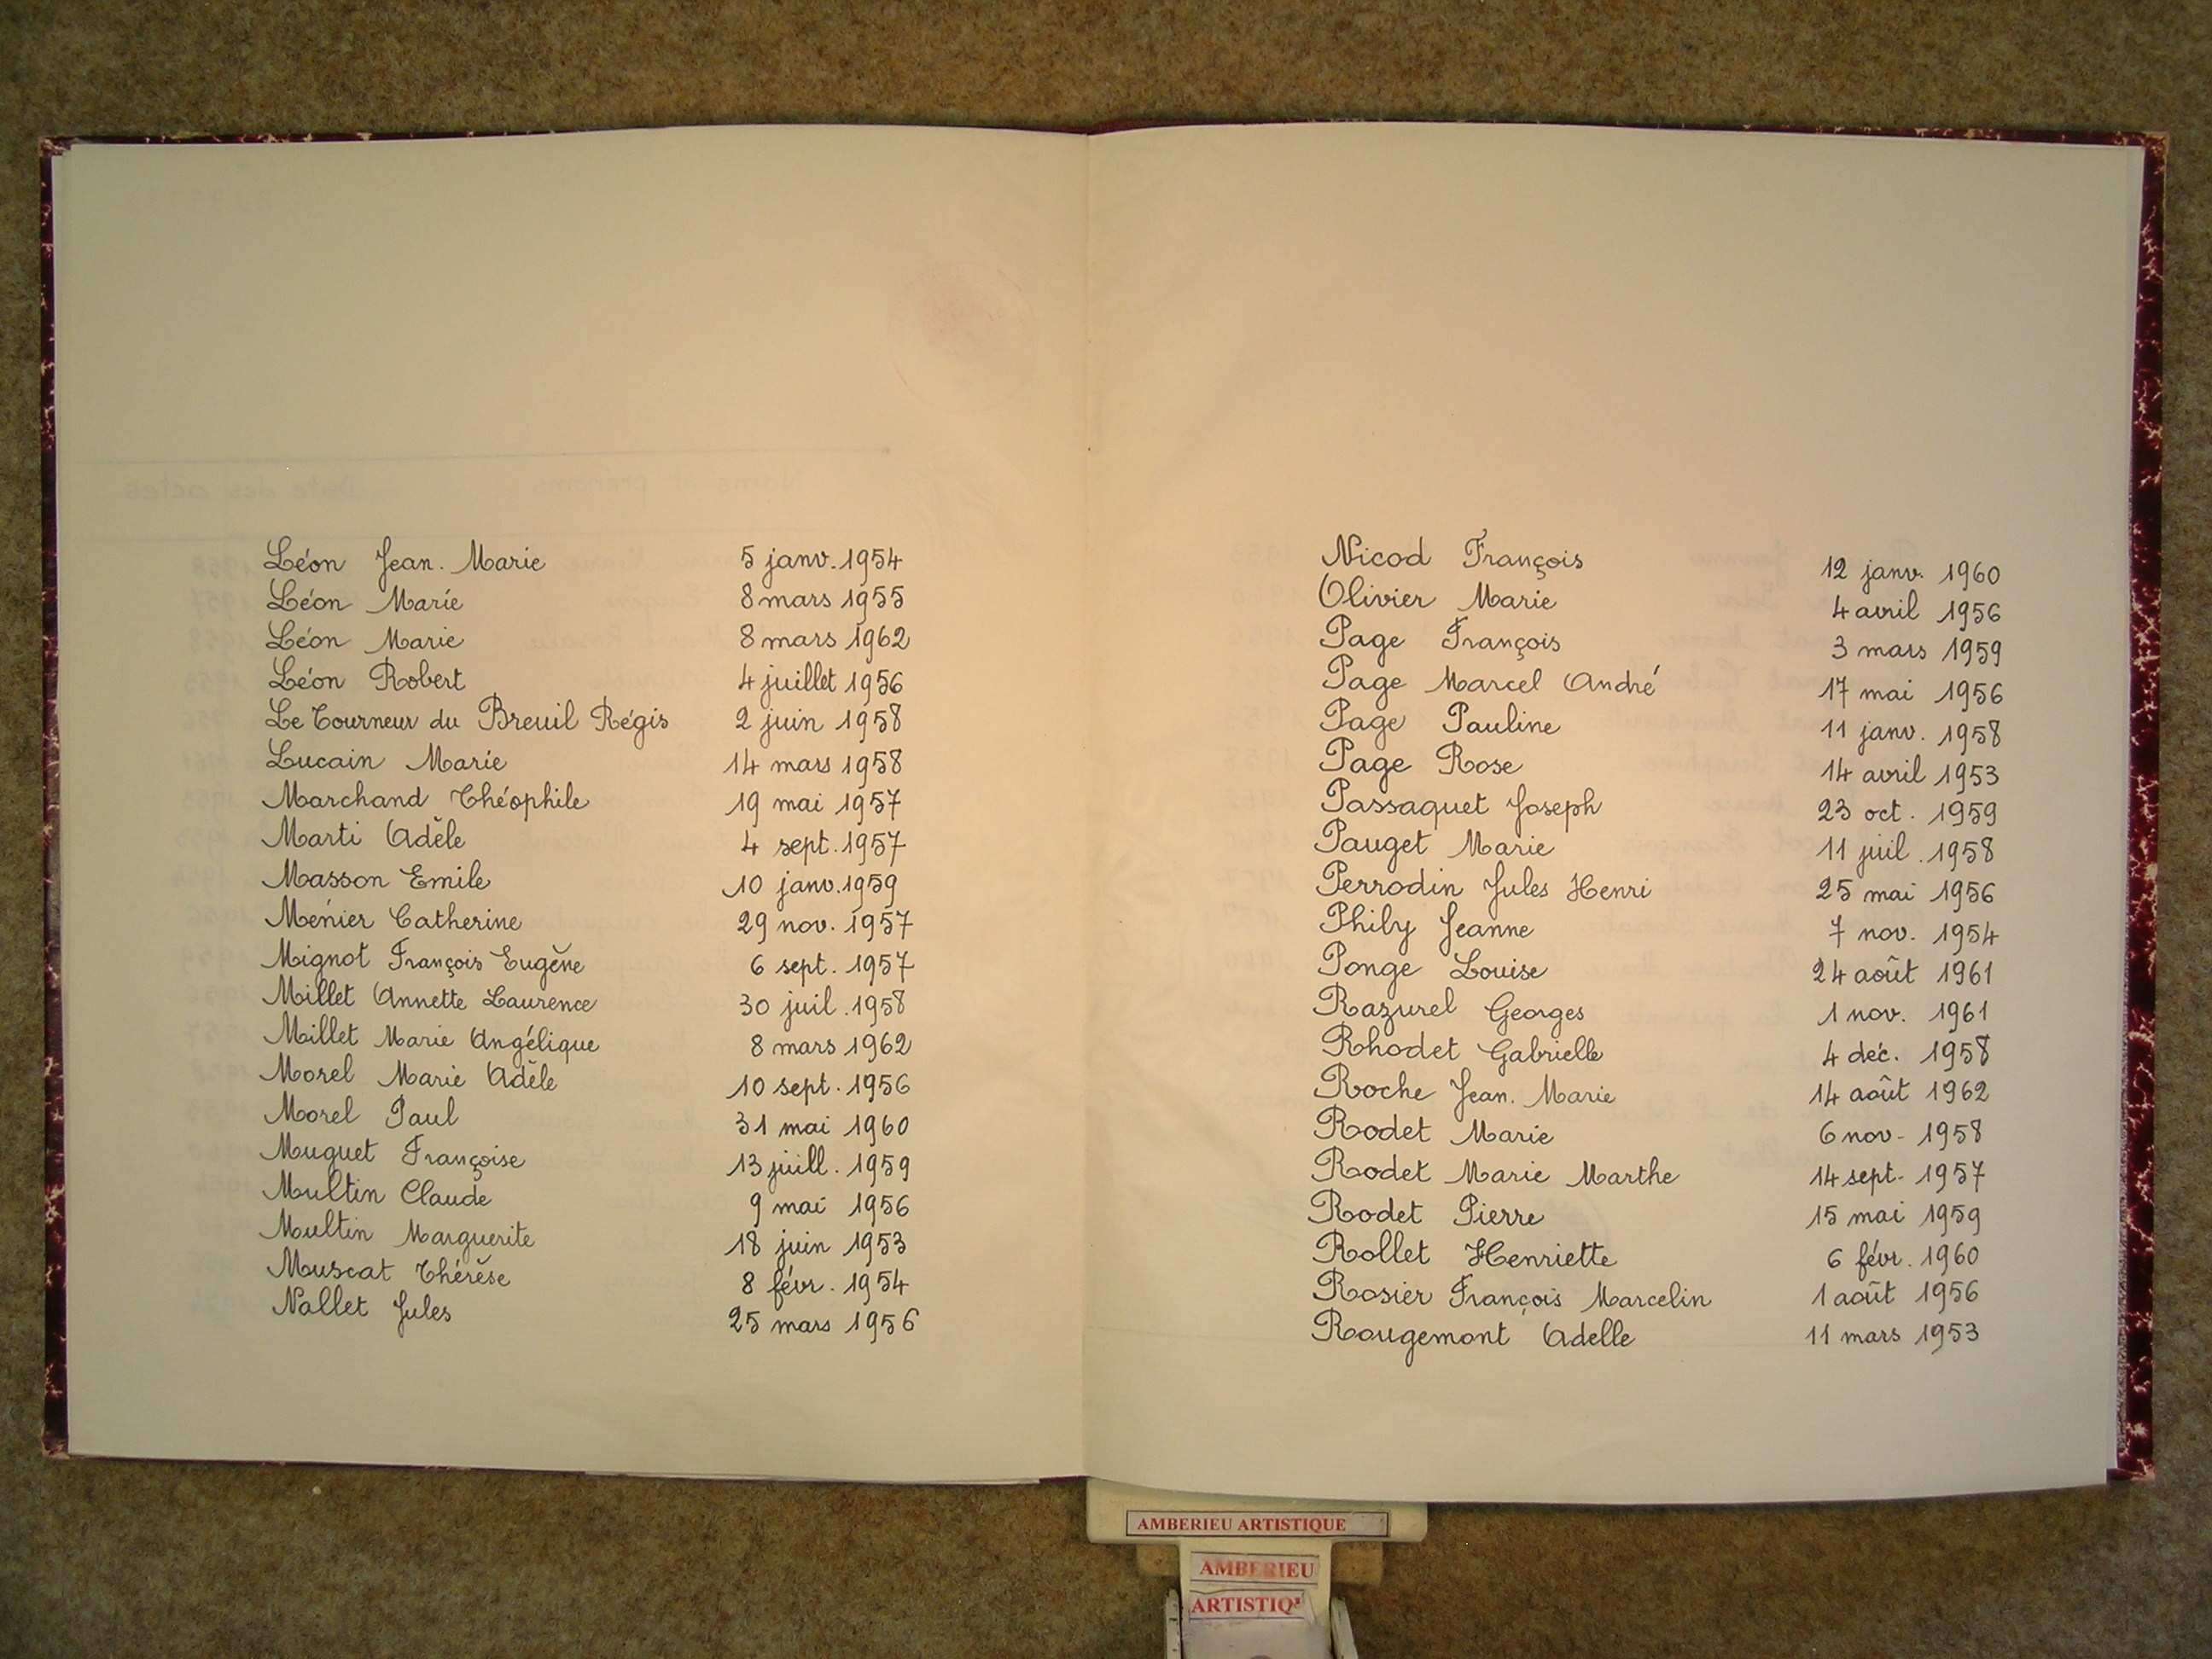 Léon Jean. Marie 5 janv. 1954
Léon Marie 8 mars 1955
Léon Marie 8 mars 1962
Léon Robert 4 juillet 1956
Le Tourneur du Breuil Régis 2 juin 1958
Lucain Marie 14 mars 1958
Marchand Théophile 19 mai 1957
Marti Adèle 4 sept. 1957
Masson Emile 10 janv. 1959
Ménier Catherine 29 nov. 1957
Mignot François Eugène 6 sept. 1957
Millet Annette Laurence 30 juil. 1958
Millet Marie Angélique 8 mars 1962
Morel Marie Adèle 10 sept. 1956
Morel Paul 31 mai 1960
Muguet Françoise 13 juill. 1959
Multin Claude 9 mai 1956
Multin Marguerite 18 juin 1953
Muscat Thérèse 8 févr. 1954
Nallet Jules 25 mars 1956
Nicod François 12 janv. 1960
Olivier Marie 4 avril 1956
Page François 3 mars 1959
Page Marcel André 17 mai 1956
Page Pauline 11 janv. 1958
Page Rose 14 avril 1953
Passaquet Joseph 23 oct. 1959
Pauget Marie 11 juil. 1958
Perrodin Jules Henri 25 mai 1956
Phily Jeanne 7 nov. 1954
Ponge Louise 24 août 1961
Razurel Georges 1 nov. 1961
Rhodet Gabrielle 4 déc. 1958
Roche Jean. Marie 14 août 1962
Rodet Marie 6 nov- 1958
Rodet Marie Marthe 14 sept- 1957
Rodet Pierre 15 mai 1959
Rollet Henriette 6 févr. 1960
Rosier François Marcelin 1 août 1956
Rougemont Adelle 11 mars 1953
AMBERIEU ARTISTIQUE
AMBERIEU
ARTISTIQ